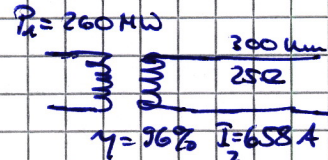 P₁ = 260 MW
300 km
25Ω
η = 96% I₂ = 658 A